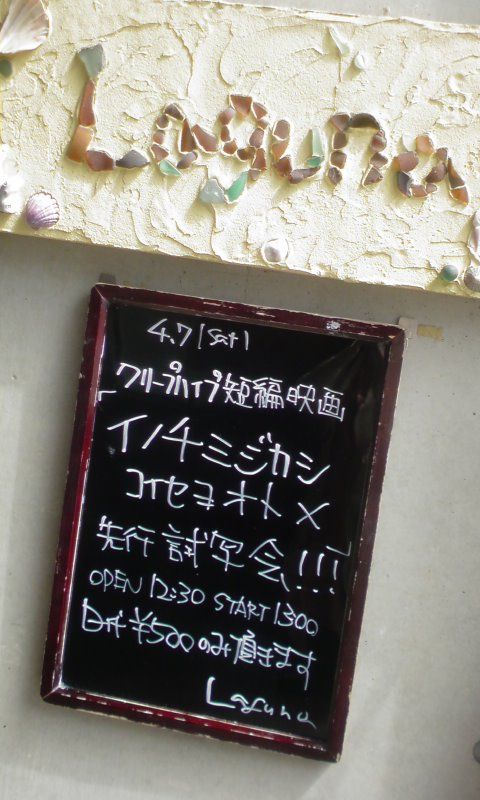 Laguna
4.7(sat)
クリープハイプ短編映画
「イノチミジカシ
コイセヨオトメ
先行試写会!!!」
OPEN 12:30 START 13:00
D代 ¥500のみ頂きます
Laguna